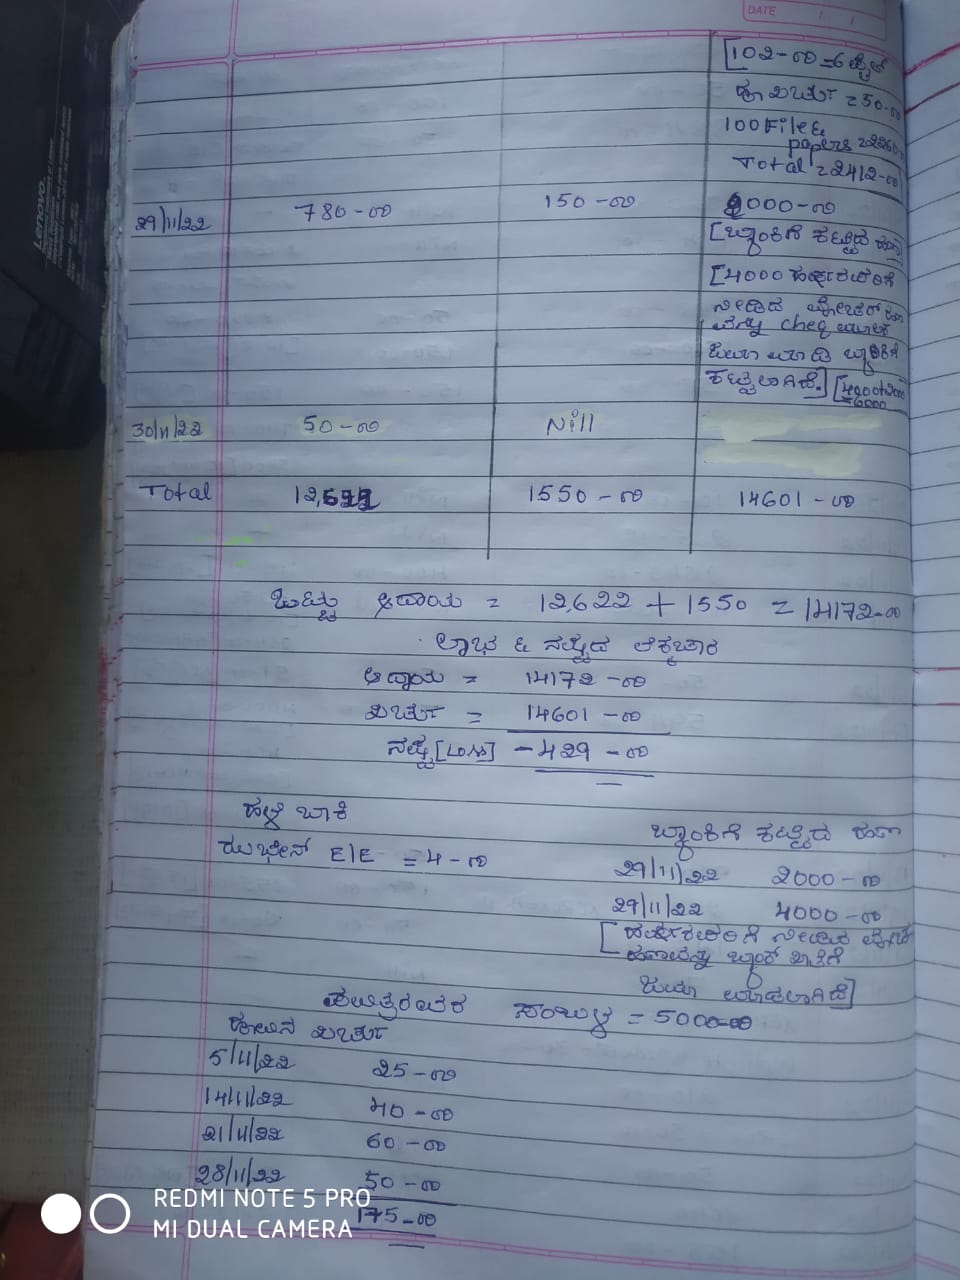 DATE / /
[102-00 = 6
ಖರ್ಚು = 50-00
100 File &
papers = 2260-
Total = 2412-00
29/11/22 780-00 150-00 2000-00
[ಬ್ಯಾಂಕಿಗೆ ಕಟ್ಟಿದ ಹಣ]
[4000
ನೀಡಿದ
cheq ಮೂಲಕ
ಜಮಾ ಮಾಡಿ ಬ್ಯಾಂಕಿಗೆ
ಕಟ್ಟಲಾಗಿದೆ.] [4000+2000
=6000
30/11/22 50-00 Nill
Total 12,622 1550-00 14601-00
ಒಟ್ಟು ಆದಾಯ = 12,622 + 1550 = 14172-00
ಲಾಭ & ನಷ್ಟದ ಲೆಕ್ಕಚಾರ
ಆದಾಯ = 14172-00
ಖರ್ಚು = 14601-00
ನಷ್ಟ [Loss] - 429-00
ಹಳೆ ಬಾಕಿ
E/E = 4-00
ಬ್ಯಾಂಕಿಗೆ ಕಟ್ಟಿದ ಹಣ
29/11/22 2000-00
29/11/22 4000-00
ನೀಡಿದ
ಹಣವನ್ನು ಬ್ಯಾಂಕ್ ಖಾತೆಗೆ
ಜಮಾ ಮಾಡಲಾಗಿದೆ]
ಸಂಬಳ = 5000-00
ಖರ್ಚು
5/11/22 25-00
14/11/22 40-00
21/11/22 60-00
28/11/22 50-00
175-00
Lenovo
REDMI NOTE 5 PRO
MI DUAL CAMERA